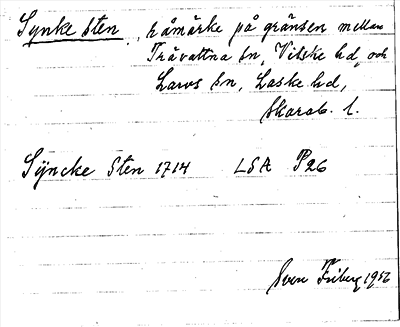 Synke sten, råmärke på gränsen mellan
Trävattna sn, Vilske hd, och
Larvs sn, Laske hd,
Skarab. l.
Sÿncke Sten 1714 LSA P26
Sven Friberg 1956